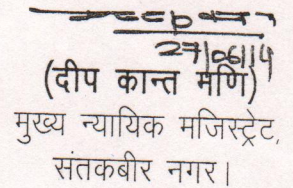 27/06/14
(दीप कान्त मणि)
मुख्य न्यायिक मजिस्ट्रेट,
संतकबीर नगर।